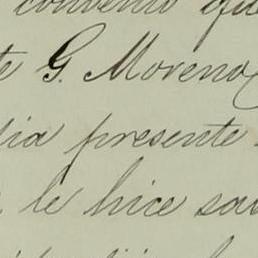 convenio que
te G. Moreno
ia presente
le hice sa